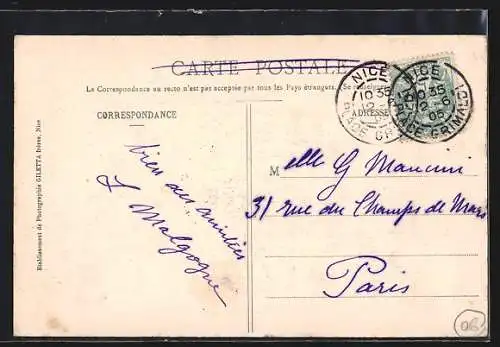 CARTE POSTALE
La Correspondance au recto n'est pas acceptée par tous les Pays étrangers. (Se renseigner
CORRESPONDANCE
ADRESSE
NICE
10 35
12 6
05
PLACE GRIMALDI
NICE
10 35
12 6
05
PLACE GRIMALDI
Melle G Mancini
31 rue du Champs de Mars
Paris
bien des amitiés
J Malgogne
Etablissement de Photographie GILETTA frères, Nice